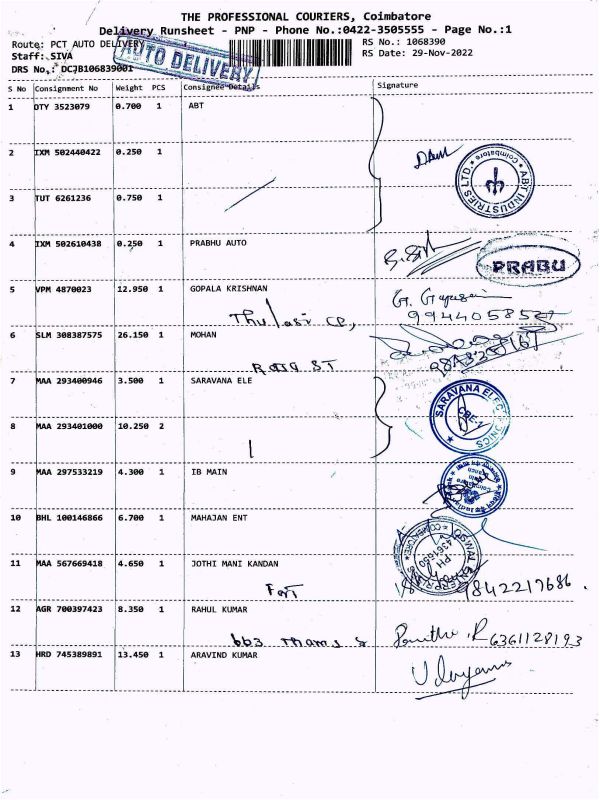 THE PROFESSIONAL COURIERS, Coimbatore
Delivery Runsheet - PNP - Phone No.:0422-3505555 - Page No.:1
Route: PCT AUTO DELIVERY
RS No.: 1068390
Staff: SIVA
RS Date: 29-Nov-2022
DRS No.: DCJB106839001
AUTO DELIVERY
S No Consignment No Weight PCS Consignee Details Signature
1 DTY 3523079 0.700 1 ABT
2 IXM 502440422 0.250 1
ABT INDUSTRIES LTD. Coimbatore
3 TUT 6261236 0.750 1
4 IXM 502610438 0.250 1 PRABHU AUTO
PRABU
5 VPM 4870023 12.950 1 GOPALA KRISHNAN
6 SLM 308387575 26.150 1 MOHAN
7 MAA 293400946 3.500 1 SARAVANA ELE
8 MAA 293401000 10.250 2
SARAVANA ELECTRONICS CBE-1
9 MAA 297533219 4.300 1 IB MAIN
10 BHL 100146866 6.700 1 MAHAJAN ENT
11 MAA 567669418 4.650 1 JOTHI MANI KANDAN
9842217686
12 AGR 700397423 8.350 1 RAHUL KUMAR
6361128193
13 HRD 745389891 13.450 1 ARAVIND KUMAR